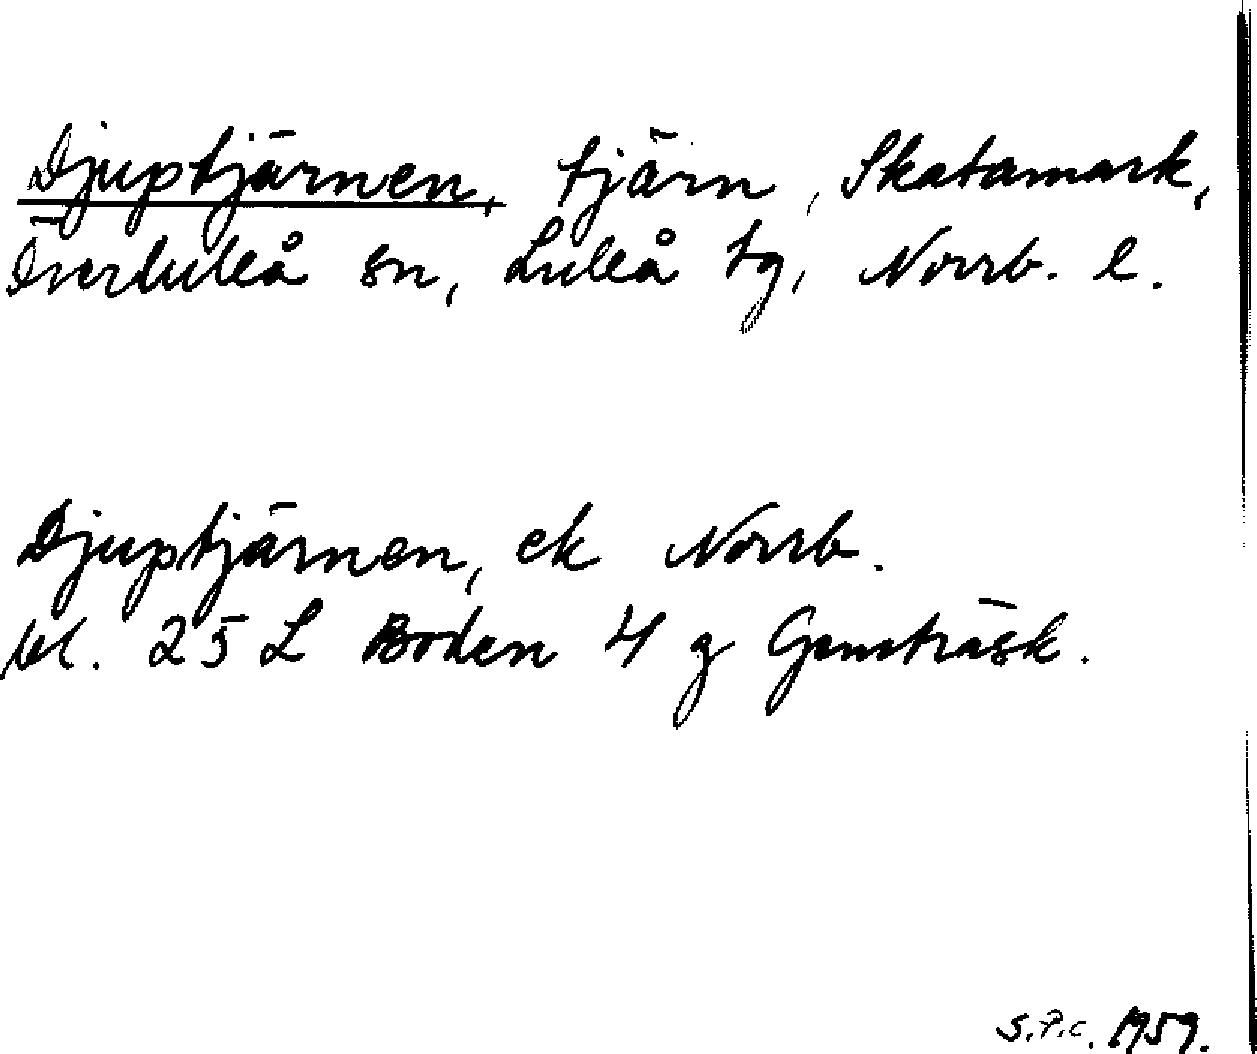 Djuptjärnen, tjärn, Skatamark,
Överluleå sn, Luleå tg, Norrb. l.
Djuptjärnen, ek Norrb.
bl. 25 L Boden 4 g Gunsträsk.
S.P.C. 1959.